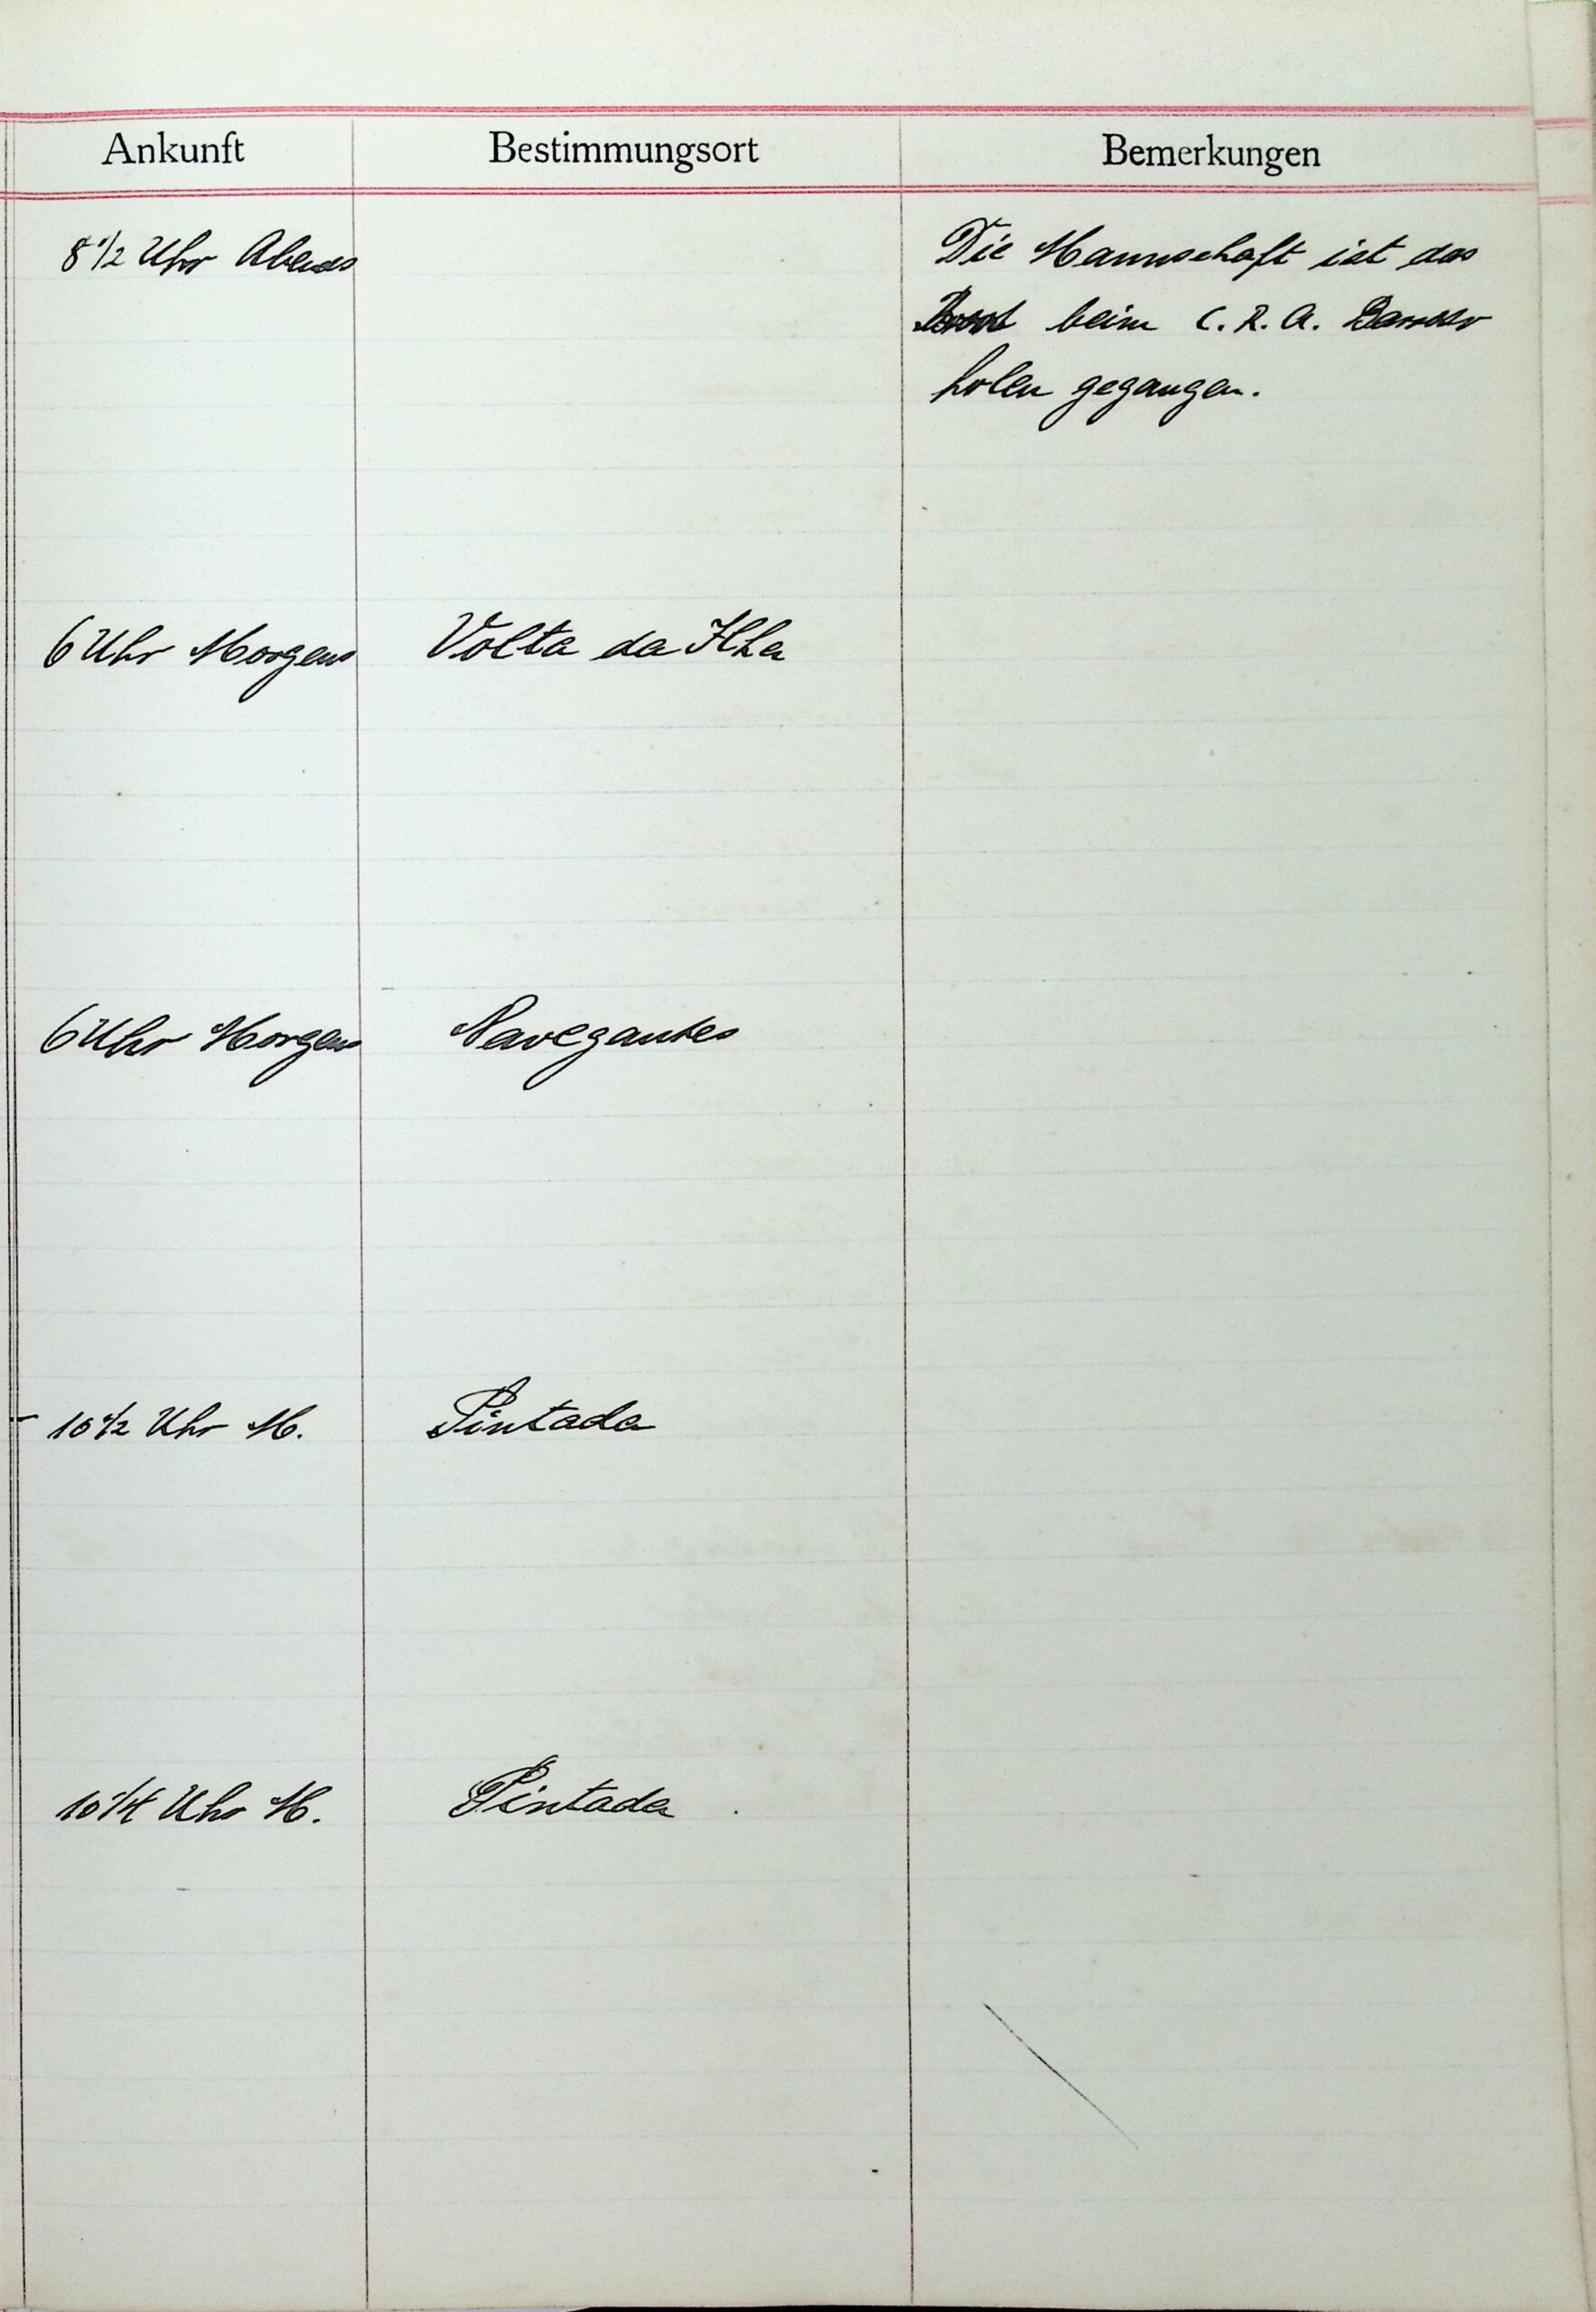 Ankunft Bestimmungsort Bemerkungen
8 1/2 Uhr Abends Die Mannschaft ist das
Boot beim C. R. A. Barroso
holen gegangen.
6 Uhr Morgens Volta da Ilha
6 Uhr Morgens Navegantes
10 1/2 Uhr M. Pintada
10 1/4 Uhr M. Pintada